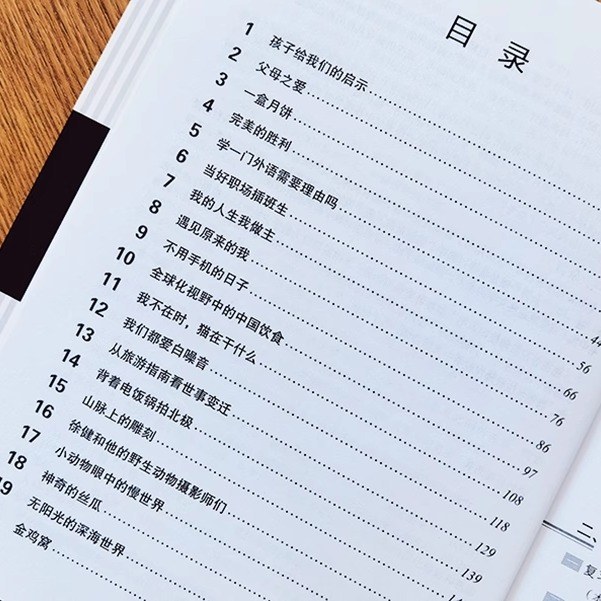 目录
1 孩子给我们的启示
2 父母之爱
3 一盒月饼
4 完美的胜利
5 学一门外语需要理由吗 44
6 当好职场插班生 56
7 我的人生我做主 66
8 遇见原来的我 76
9 不用手机的日子 86
10 全球化视野中的中国饮食 97
11 我不在时，猫在干什么 108
12 我们都爱白噪音 118
13 从旅游指南看世事变迁 129
14 背着电饭锅拍北极 139
15 山脉上的雕刻
16 徐健和他的野生动物摄影师们
17 小动物眼中的慢世界
18 神奇的丝瓜
19 无阳光的深海世界
金鸡窝
二、
一 复